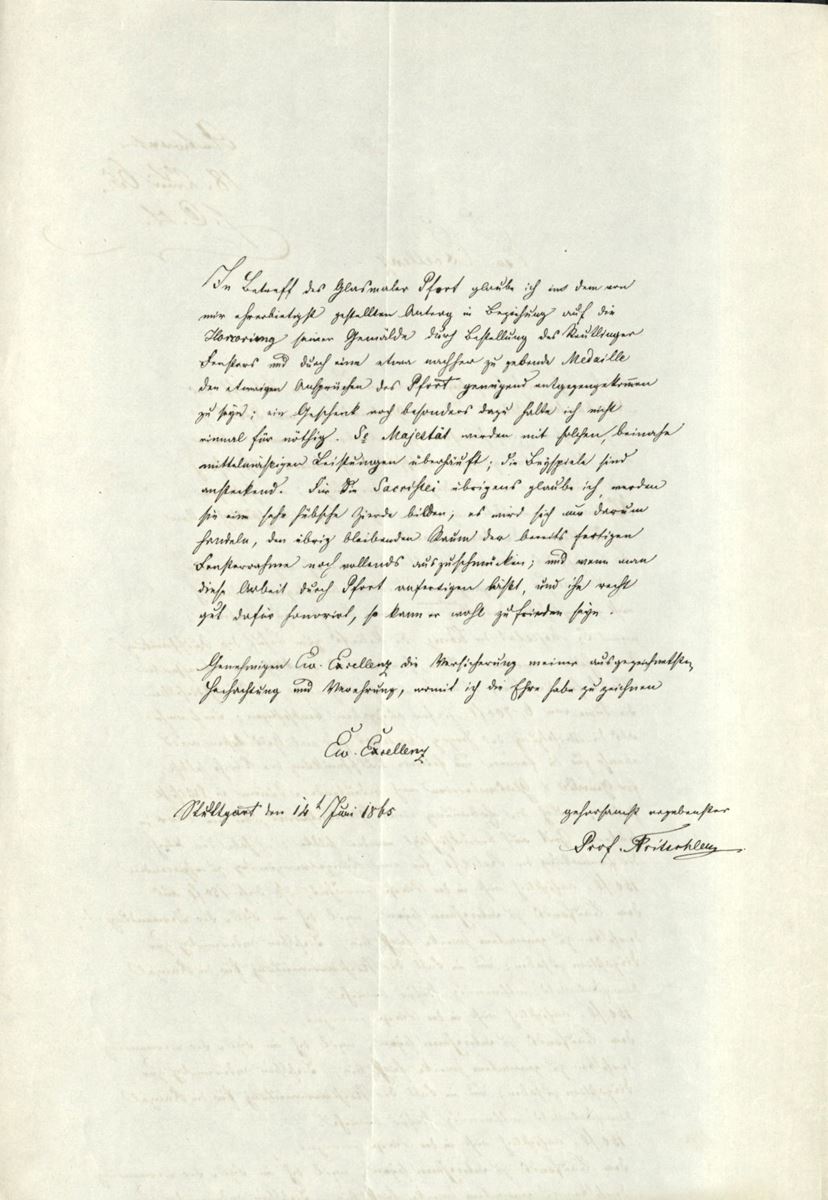 In Betreff des Glasmaler Pfort glaube ich in dem von
mir ehrerbietigst gestellten Antrag in Beziehung auf die
Honorirung seiner Gemälde durch Bestellung des Reutlinger
Fensters und durch eine etwa nachher zu gebende Medaille
den etwaigen Ansprüchen des Pfort genügend entgegengekommen
zu seyn; ein Geschenk noch besonders dazu halte ich nicht
einmal für nöthig. Se Majestät werden mit solchen, beinahe
mittelmäßigen Leistungen überhäuft; die Beyspiele sind
ansteckend. Für die Sacristei übrigens glaube ich, werden
sie eine sehr hübsche Zierde bilden; es wird sich nur darum
handeln, den übrig bleibenden Raum der bereits fertigen
Fensterrahme noch vollends auszuschmücken; und wenn man
diese Arbeit durch Pfort anfertigen läßt, und ihn recht
gut dafür honorirt, so kann er wohl zufrieden seyn.
Genehmigen Ew. Excellenz die Versicherung meiner ausgezeichnetsten
Hochachtung und Verehrung, womit ich die Ehre habe zu zeichnen
Ew. Excellenz
Stuttgart den 14t Juni 1865
gehorsamst ergebenster
Prof.